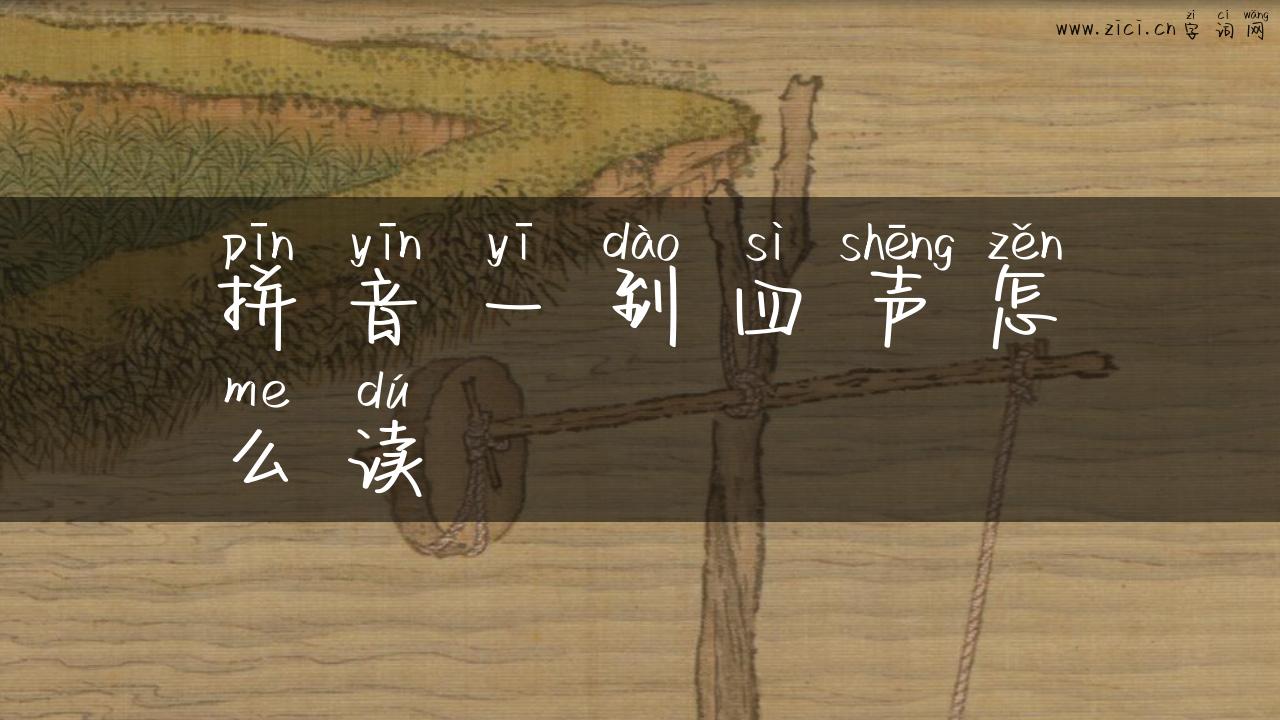 zì cí wǎng
www.zici.cn 字词网
pīn yīn yī dào sì shēng zěn
拼音一到四声怎
me dú
么读